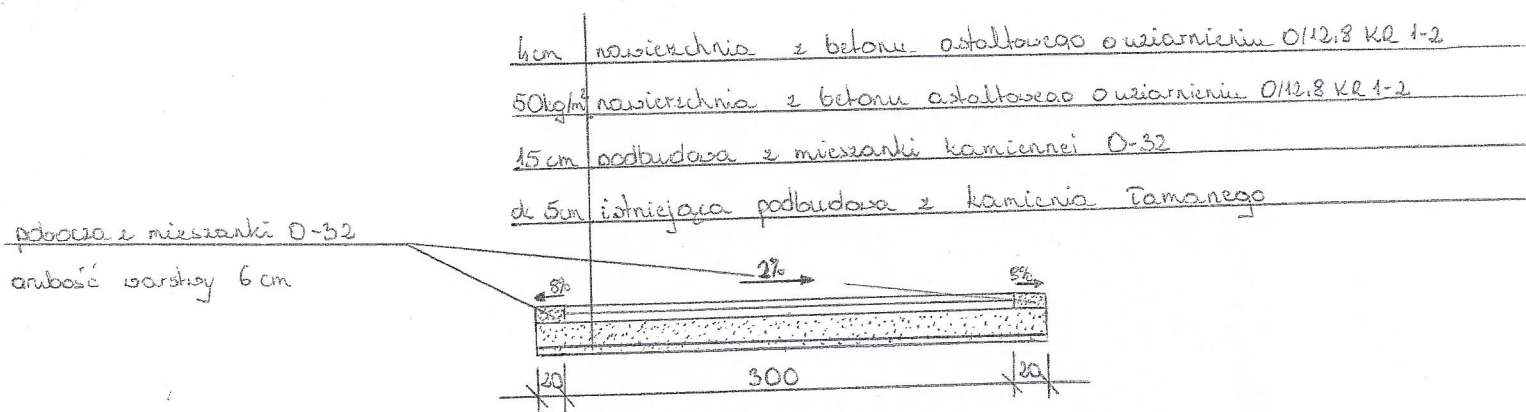 4cm nawierzchnia z betonu asfaltowego o uziarnieniu 0/12.8 KR 1-2
50kg/m² nawierzchnia z betonu asfaltowego o uziarnieniu 0/12.8 KR 1-2
15 cm podbudowa z mieszanki kamiennej 0-32
ok 5cm istniejąca podbudowa z kamienia łamanego
pobocza z mieszanki 0-32
grubość warstwy 6 cm
8% 2% 8%
20 300 20